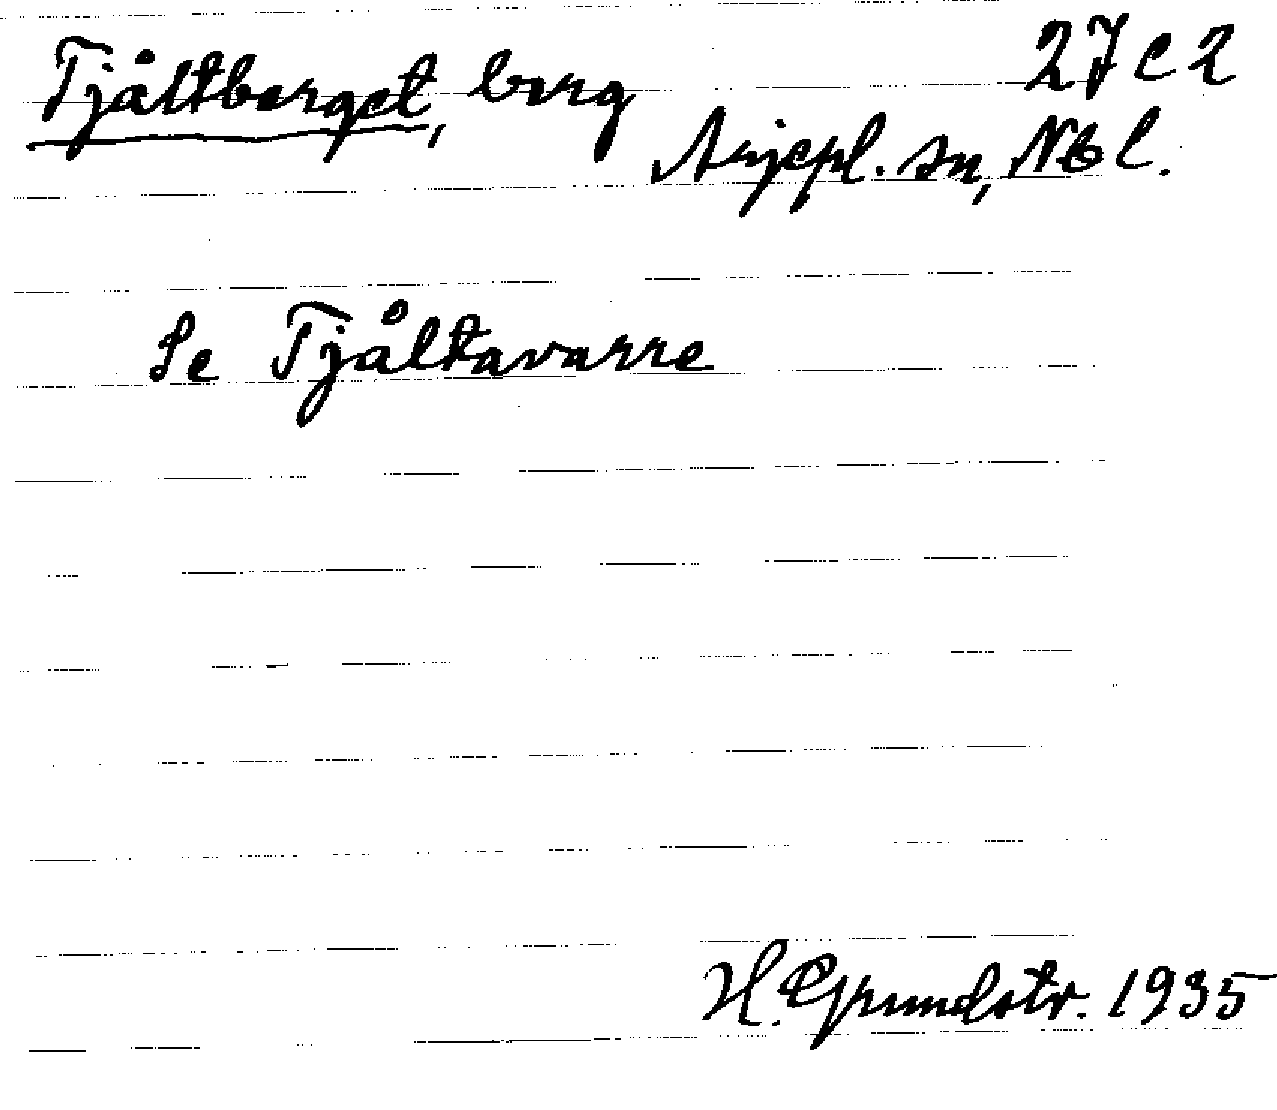 Tjåltberget, berg 27 c 2
Arjepl. sn, Nbl.
Se Tjåltavarre
H. Grundstr. 1935